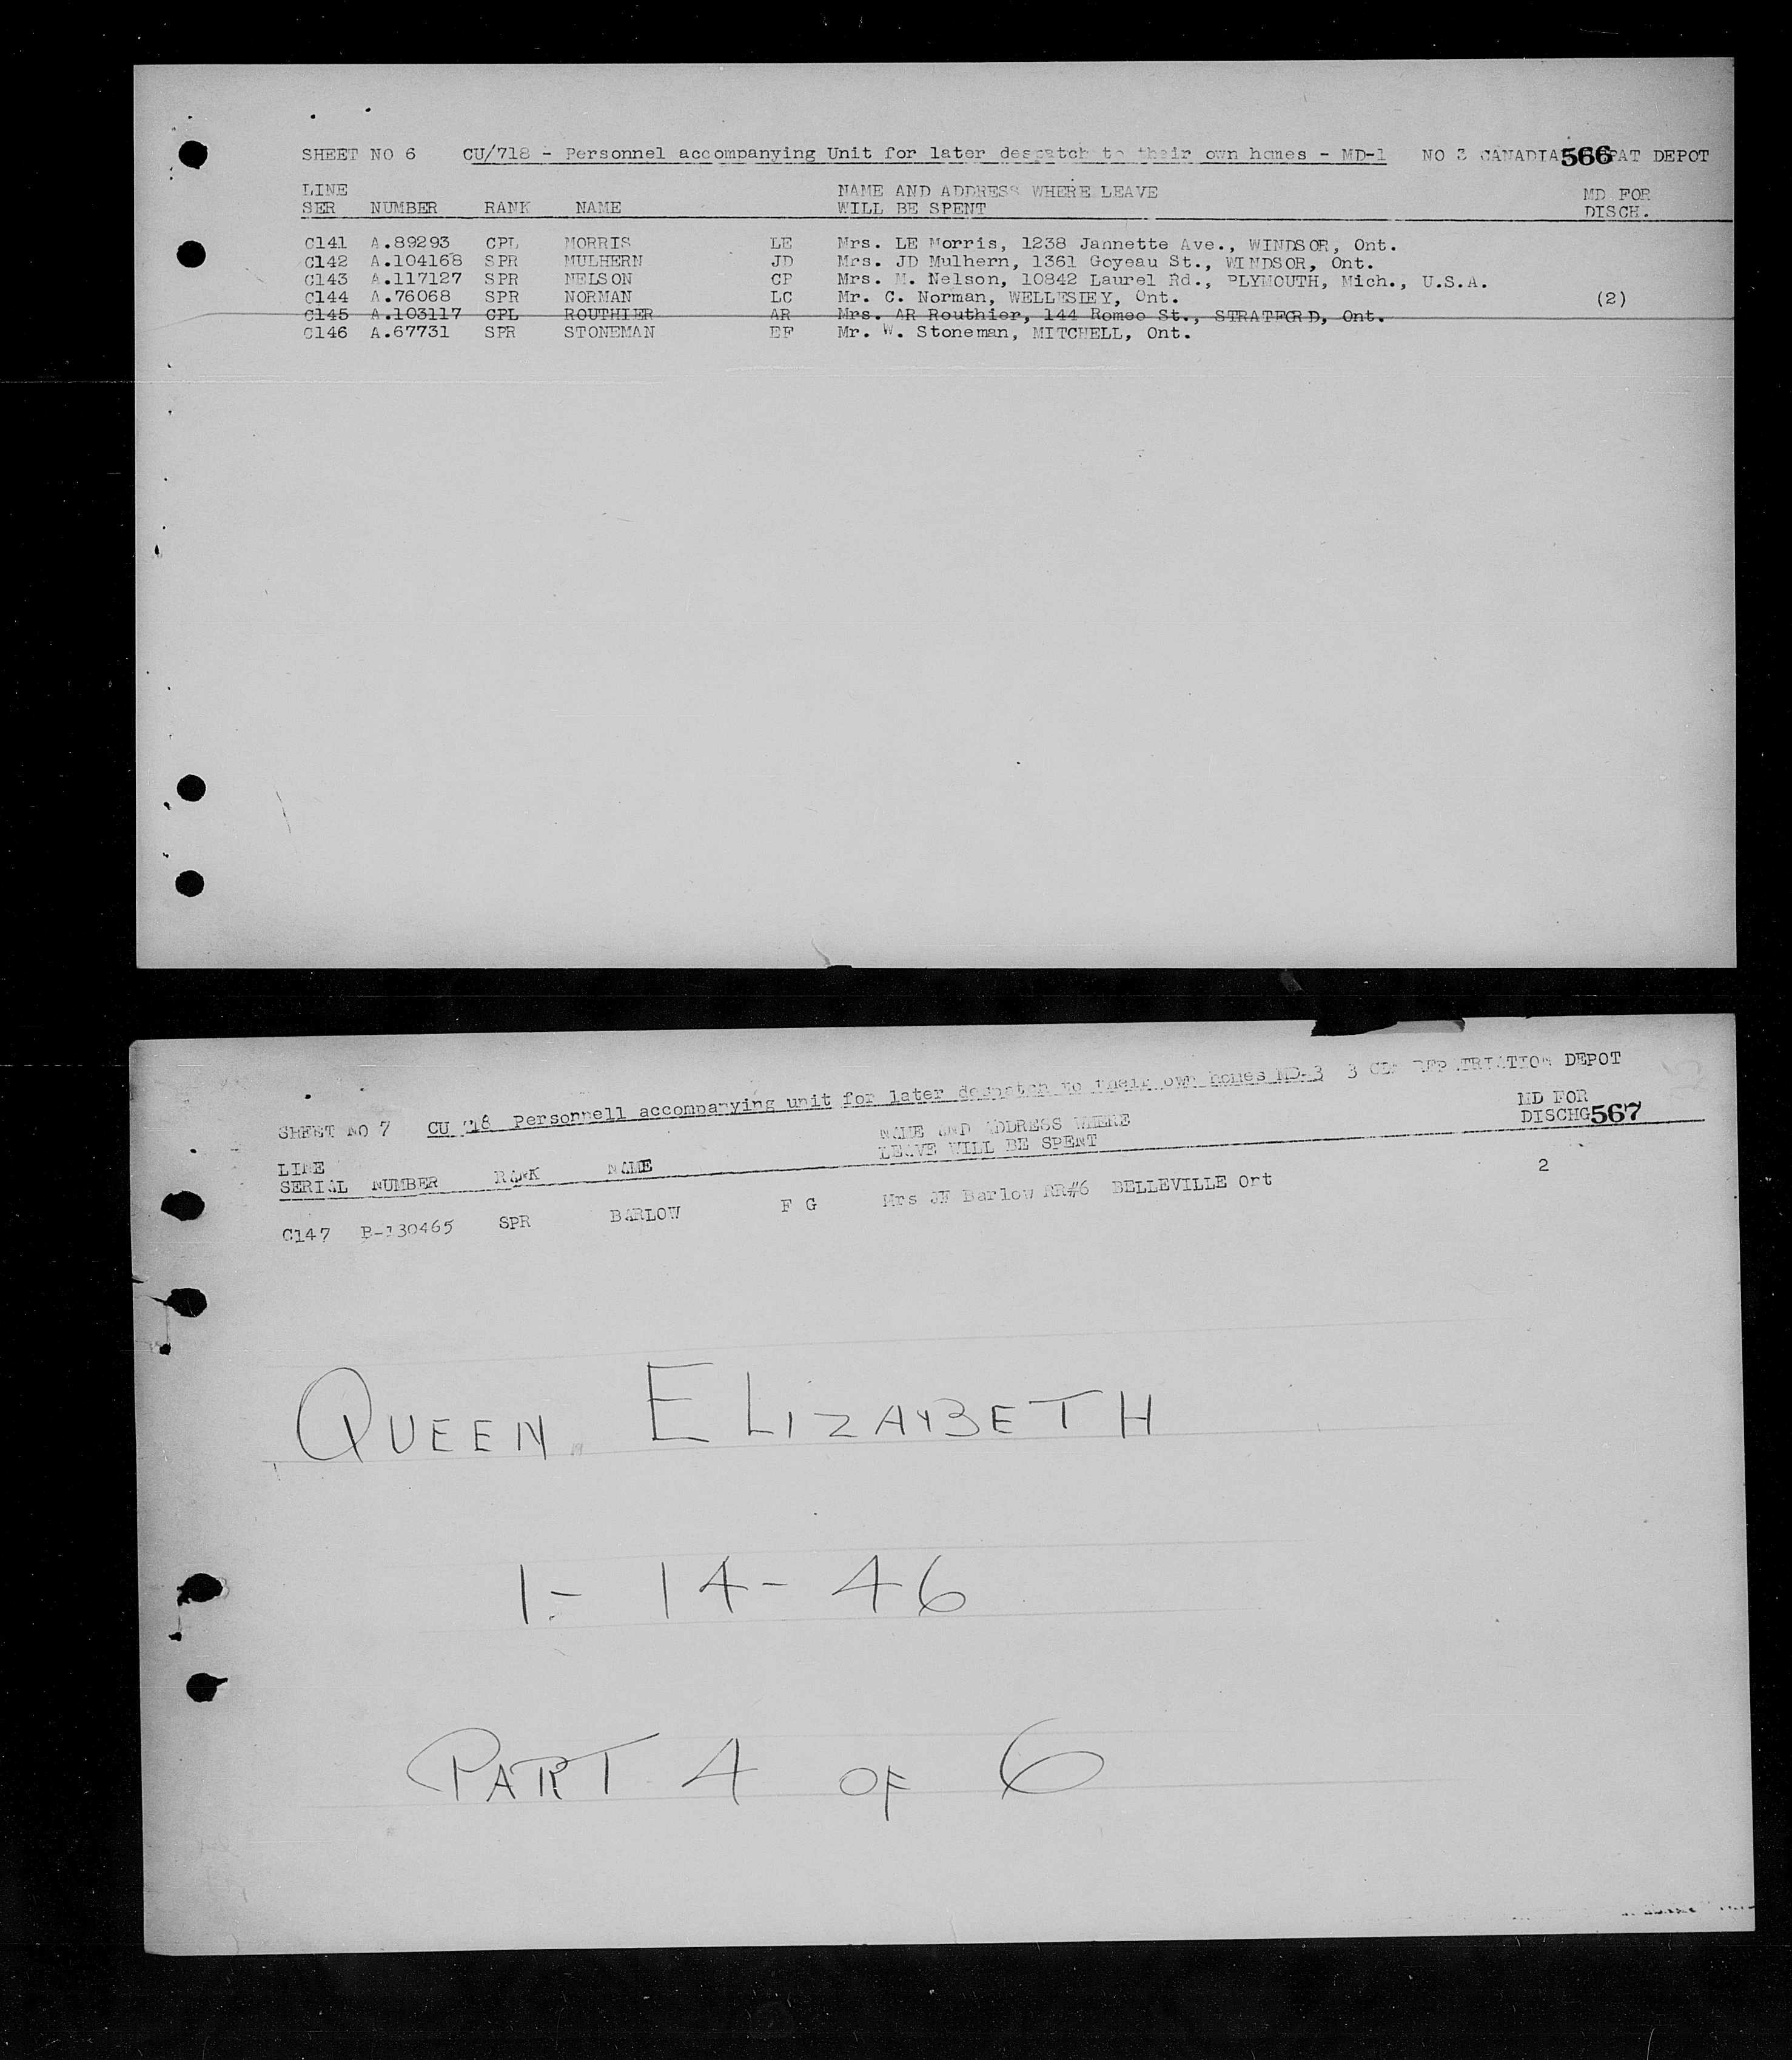 SHEET NO 6 CU/718 - Personnel accompanying Unit for later despatch to their own homes - MD-1 NO 3 CANADIA 566 PAT DEPOT
LINE NAME AND ADDRESS WHERE LEAVE MD FOR
SER NUMBER RANK NAME WILL BE SPENT DISCH.
C141 A.89293 CPL MORRIS LE Mrs. LE Morris, 1238 Jannette Ave., WINDSOR, Ont.
C142 A.104168 SPR MULHERN JD Mrs. JD Mulhern, 1361 Goyeau St., WINDSOR, Ont.
C143 A.117127 SPR NELSON CP Mrs. M. Nelson, 10842 Laurel Rd., PLYMOUTH, Mich., U.S.A.
C144 A.76068 SPR NORMAN LC Mr. C. Norman, WELLESLEY, Ont. (2)
C145 A.103117 CPL ROUTHIER AR Mrs. AR Routhier, 144 Romeo St., STRATFORD, Ont.
C146 A.67731 SPR STONEMAN EF Mr. W. Stoneman, MITCHELL, Ont.
SHEET NO 7 CU 718 Personnell accompanying unit for later despatch to their own homes MD-3 3 CDN REPATRIATION DEPOT
LINE NAME AND ADDRESS WHERE MD FOR
SERIAL NUMBER RANK NAME LEAVE WILL BE SPENT DISCHG 567
C147 B-130465 SPR BARLOW F G Mrs JW Barlow RR#6 BELLEVILLE Ort 2
QUEEN ELIZABETH
1- 14- 46
PART 4 OF 6